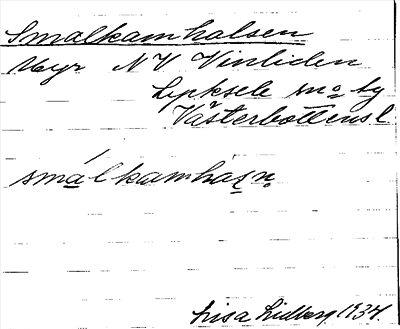 Smalkamhalsen
Myr NV Vinliden
Lycksele sn o by
Västerbottens l.
smálkamhaln
Lisa Lidberg 1934.